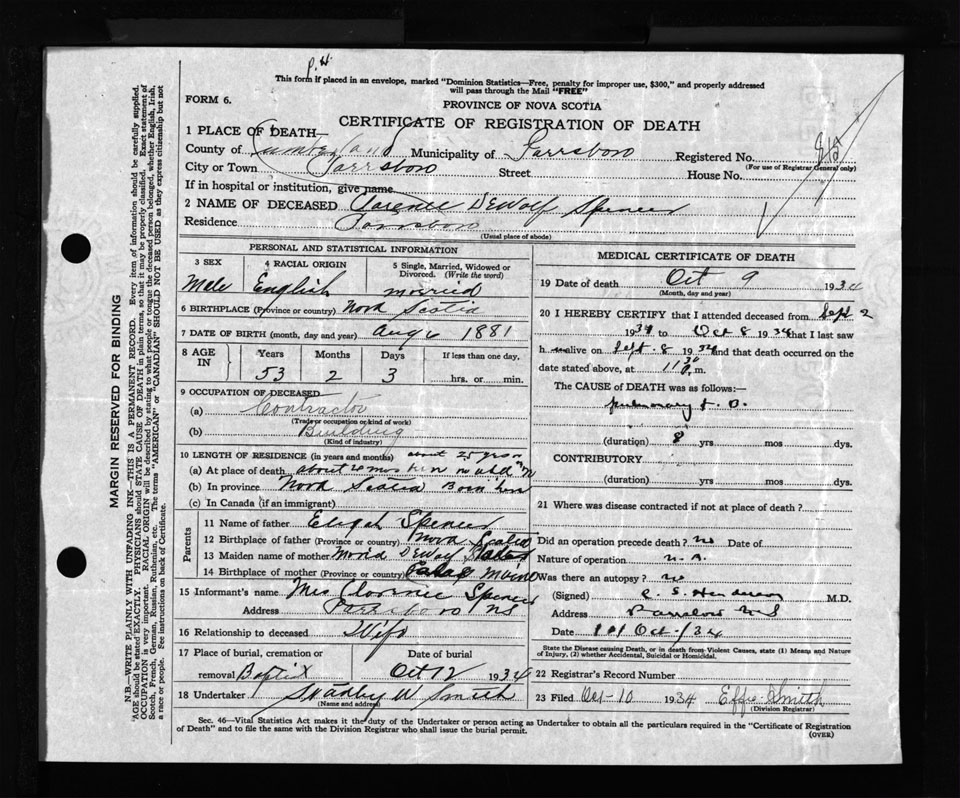 P.H.
This form if placed in an envelope, marked "Dominion Statistics—Free, penalty for improper use, $300," and properly addressed
will pass through the Mail "FREE"
FORM 6.
PROVINCE OF NOVA SCOTIA
CERTIFICATE OF REGISTRATION OF DEATH
1 PLACE OF DEATH—
County of Cumberland Municipality of Parrsboro Registered No.
(For use of Registrar General only)
City or Town Parrsboro Street House No.
If in hospital or institution, give name
2 NAME OF DECEASED Clarence DeWolf Spencer
Residence Parrsboro
(Usual place of abode)
PERSONAL AND STATISTICAL INFORMATION
3 SEX 4 RACIAL ORIGIN 5 Single, Married, Widowed or Divorced. (Write the word)
Male English married
6 BIRTHPLACE (Province or country) Nova Scotia
7 DATE OF BIRTH (month, day and year) Aug 6 1881
8 AGE IN Years Months Days If less than one day.
53 2 3 hrs. or min.
9 OCCUPATION OF DECEASED
(a) Contractor
(Trade or occupation or kind of work)
(b) Building
(Kind of industry)
10 LENGTH OF RESIDENCE (in years and months) about 25 yrs
(a) At place of death about
(b) In province Nova Scotia Born here
(c) In Canada (if an immigrant)
Parents
11 Name of father Elijah Spencer
12 Birthplace of father (Province or country) Nova Scotia
13 Maiden name of mother DeWolf
14 Birthplace of mother (Province or country) Maine
15 Informant's name Mrs Clarence Spencer
Address Parrsboro NS
16 Relationship to deceased Wife
17 Place of burial, cremation or removal Baptist Date of burial Oct 12 1934
18 Undertaker W Smith
(Name and address)
MEDICAL CERTIFICATE OF DEATH
19 Date of death Oct 9 1934
(Month, day and year)
20 I HEREBY CERTIFY that I attended deceased from Sept 2
1934 to Oct 8 1934 that I last saw
h m alive on Sept. 8 1934 and that death occurred on
date stated above, at 11 30 m.
The CAUSE of DEATH was as follows:—
pulmonary t. B.
(duration) 8 yrs mos dys.
CONTRIBUTORY
(duration) yrs mos dys.
21 Where was disease contracted if not at place of death?
Did an operation precede death? no Date of
Nature of operation
Was there an autopsy? no
(Signed) M.D.
Address
Date Oct/34
State the Disease causing Death, or in death from Violent Causes, state (1) Means and Nature of Injury, (2) whether Accidental, Suicidal or Homicidal.
22 Registrar's Record Number
23 Filed Oct-10 1934 Effie Smith
(Division Registrar)
Sec. 46—Vital Statistics Act makes it the duty of the Undertaker or person acting as Undertaker to obtain all the particulars required in the "Certificate of Registration
of Death" and to file the same with the Division Registrar who shall issue the burial permit. (OVER)
MARGIN RESERVED FOR BINDING
N.B.—WRITE PLAINLY WITH UNFADING INK—THIS IS A PERMANENT RECORD. Every item of information should be carefully supplied.
AGE should be stated EXACTLY. PHYSICIANS should STATE CAUSE OF DEATH in plain terms, so that it may be properly classified. Exact statement of
OCCUPATION is very important. RACIAL ORIGIN will be described by stating to what people or tongue the deceased person belonged, whether English, Irish,
Scotch, French, German, Russian, Ruthenian, etc. The terms "AMERICAN" or "CANADIAN" SHOULD NOT BE USED as they express citizenship but not
a race or people. See instructions on back of Certificate.